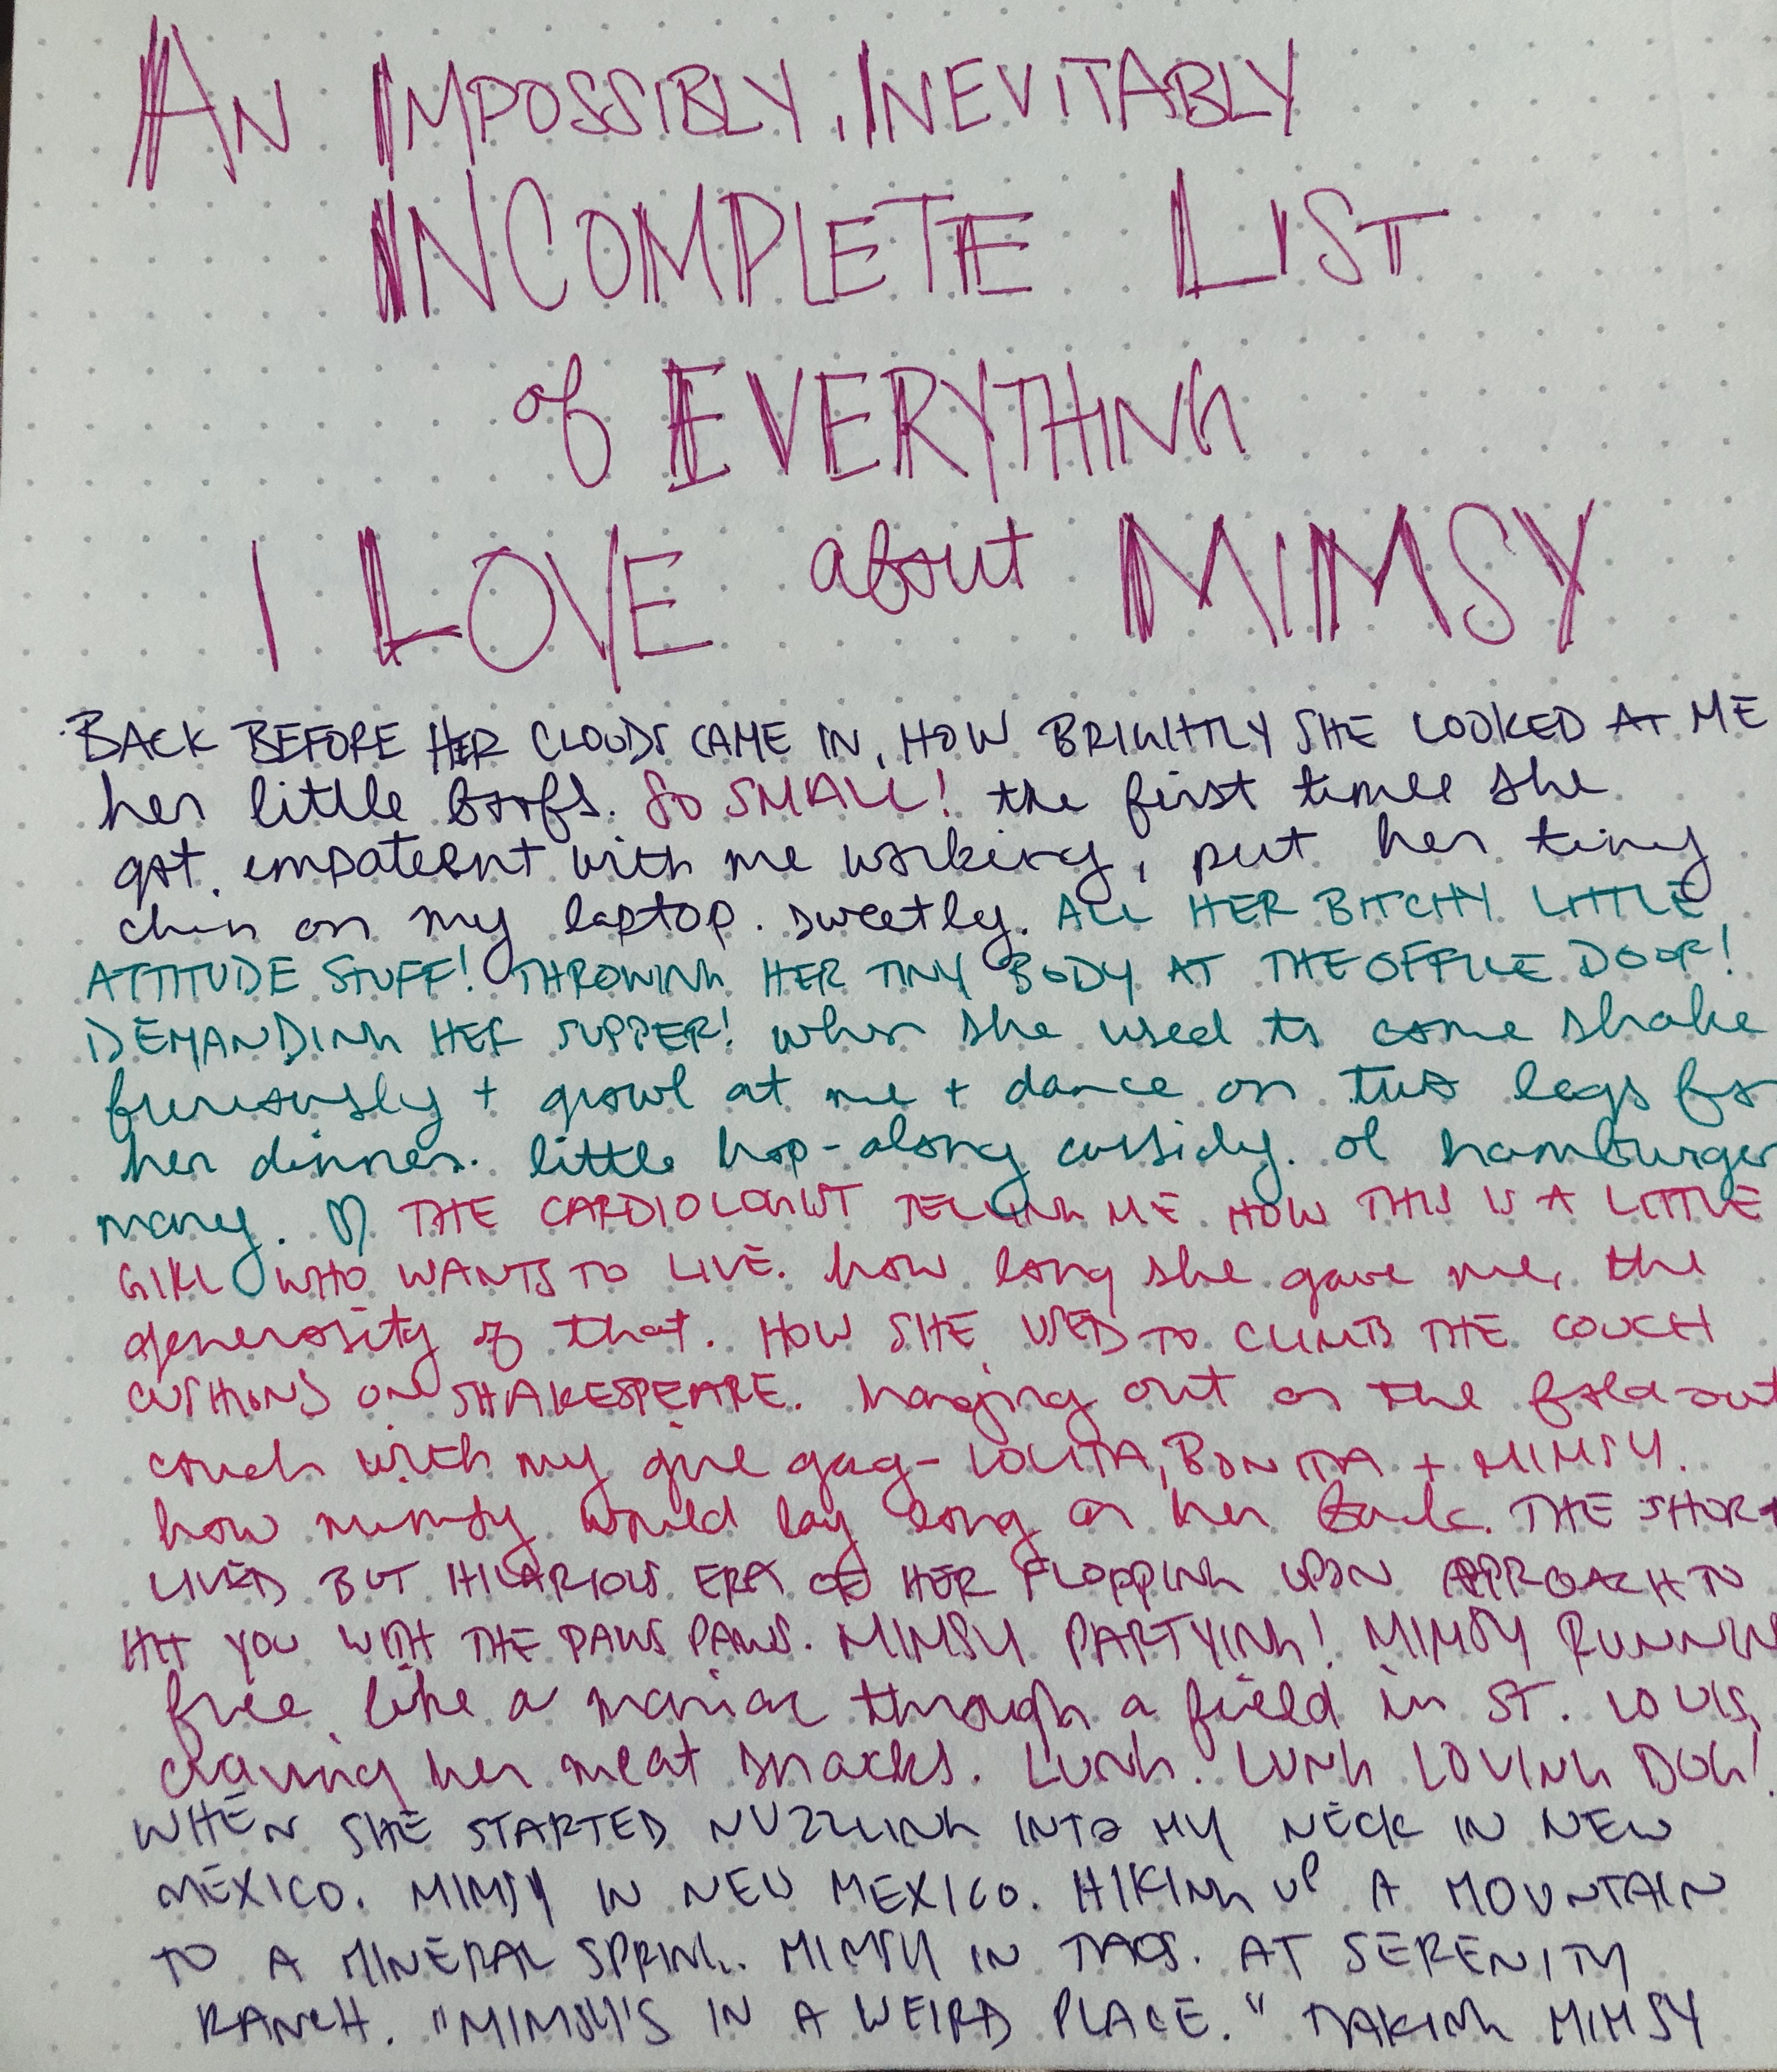 AN IMPOSSIBLY, INEVITABLY
INCOMPLETE LIST
of EVERYTHING
I LOVE about MIMSY
BACK BEFORE HER CLOUDS CAME IN, HOW BRIGHTLY SHE LOOKED AT ME
her little boofs. SO SMALL! the first times she
got impatient with me working, put her tiny
chin on my laptop. sweetly. ALL HER BITCHY LITTLE
ATTITUDE STUFF! THROWING HER TINY BODY AT THE OFFICE DOOR!
DEMANDING HER SUPPER! when she used to come shake
furiously + growl at me + dance on two legs for
her dinner. little hop-along cassidy. ol hamburger
mary. THE CARDIOLOGIST TELLING ME HOW THIS IS A LITTLE
GIRL WHO WANTS TO LIVE. how long she gave me, the
generosity of that. HOW SHE USED TO CLIMB THE COUCH
CUSHIONS ON SHAKESPEARE. hanging out on the fold-out
couch with my girl gag- LOLITA, BONITA + MIMSY.
how mimsy would lay long on her back. THE SHORT
LIVED BUT HILARIOUS ERA OF HER FLOPPING UPON APPROACH TO
HIT YOU WITH THE PAWS PAWS. MIMSY PARTYING! MIMSY RUNNIN
free like a maniac through a field in ST. LOUIS,
craving her meat snacks. LUNG. LUNG LOVING DOG!
WHEN SHE STARTED NUZZLING INTO MY NECK IN NEW
MEXICO. MIMSY IN NEW MEXICO. HIKING UP A MOUNTAIN
TO A MINERAL SPRING. MIMSY IN TAOS. AT SERENITY
RANCH. "MIMSY'S IN A WEIRD PLACE." TAKING MIMSY